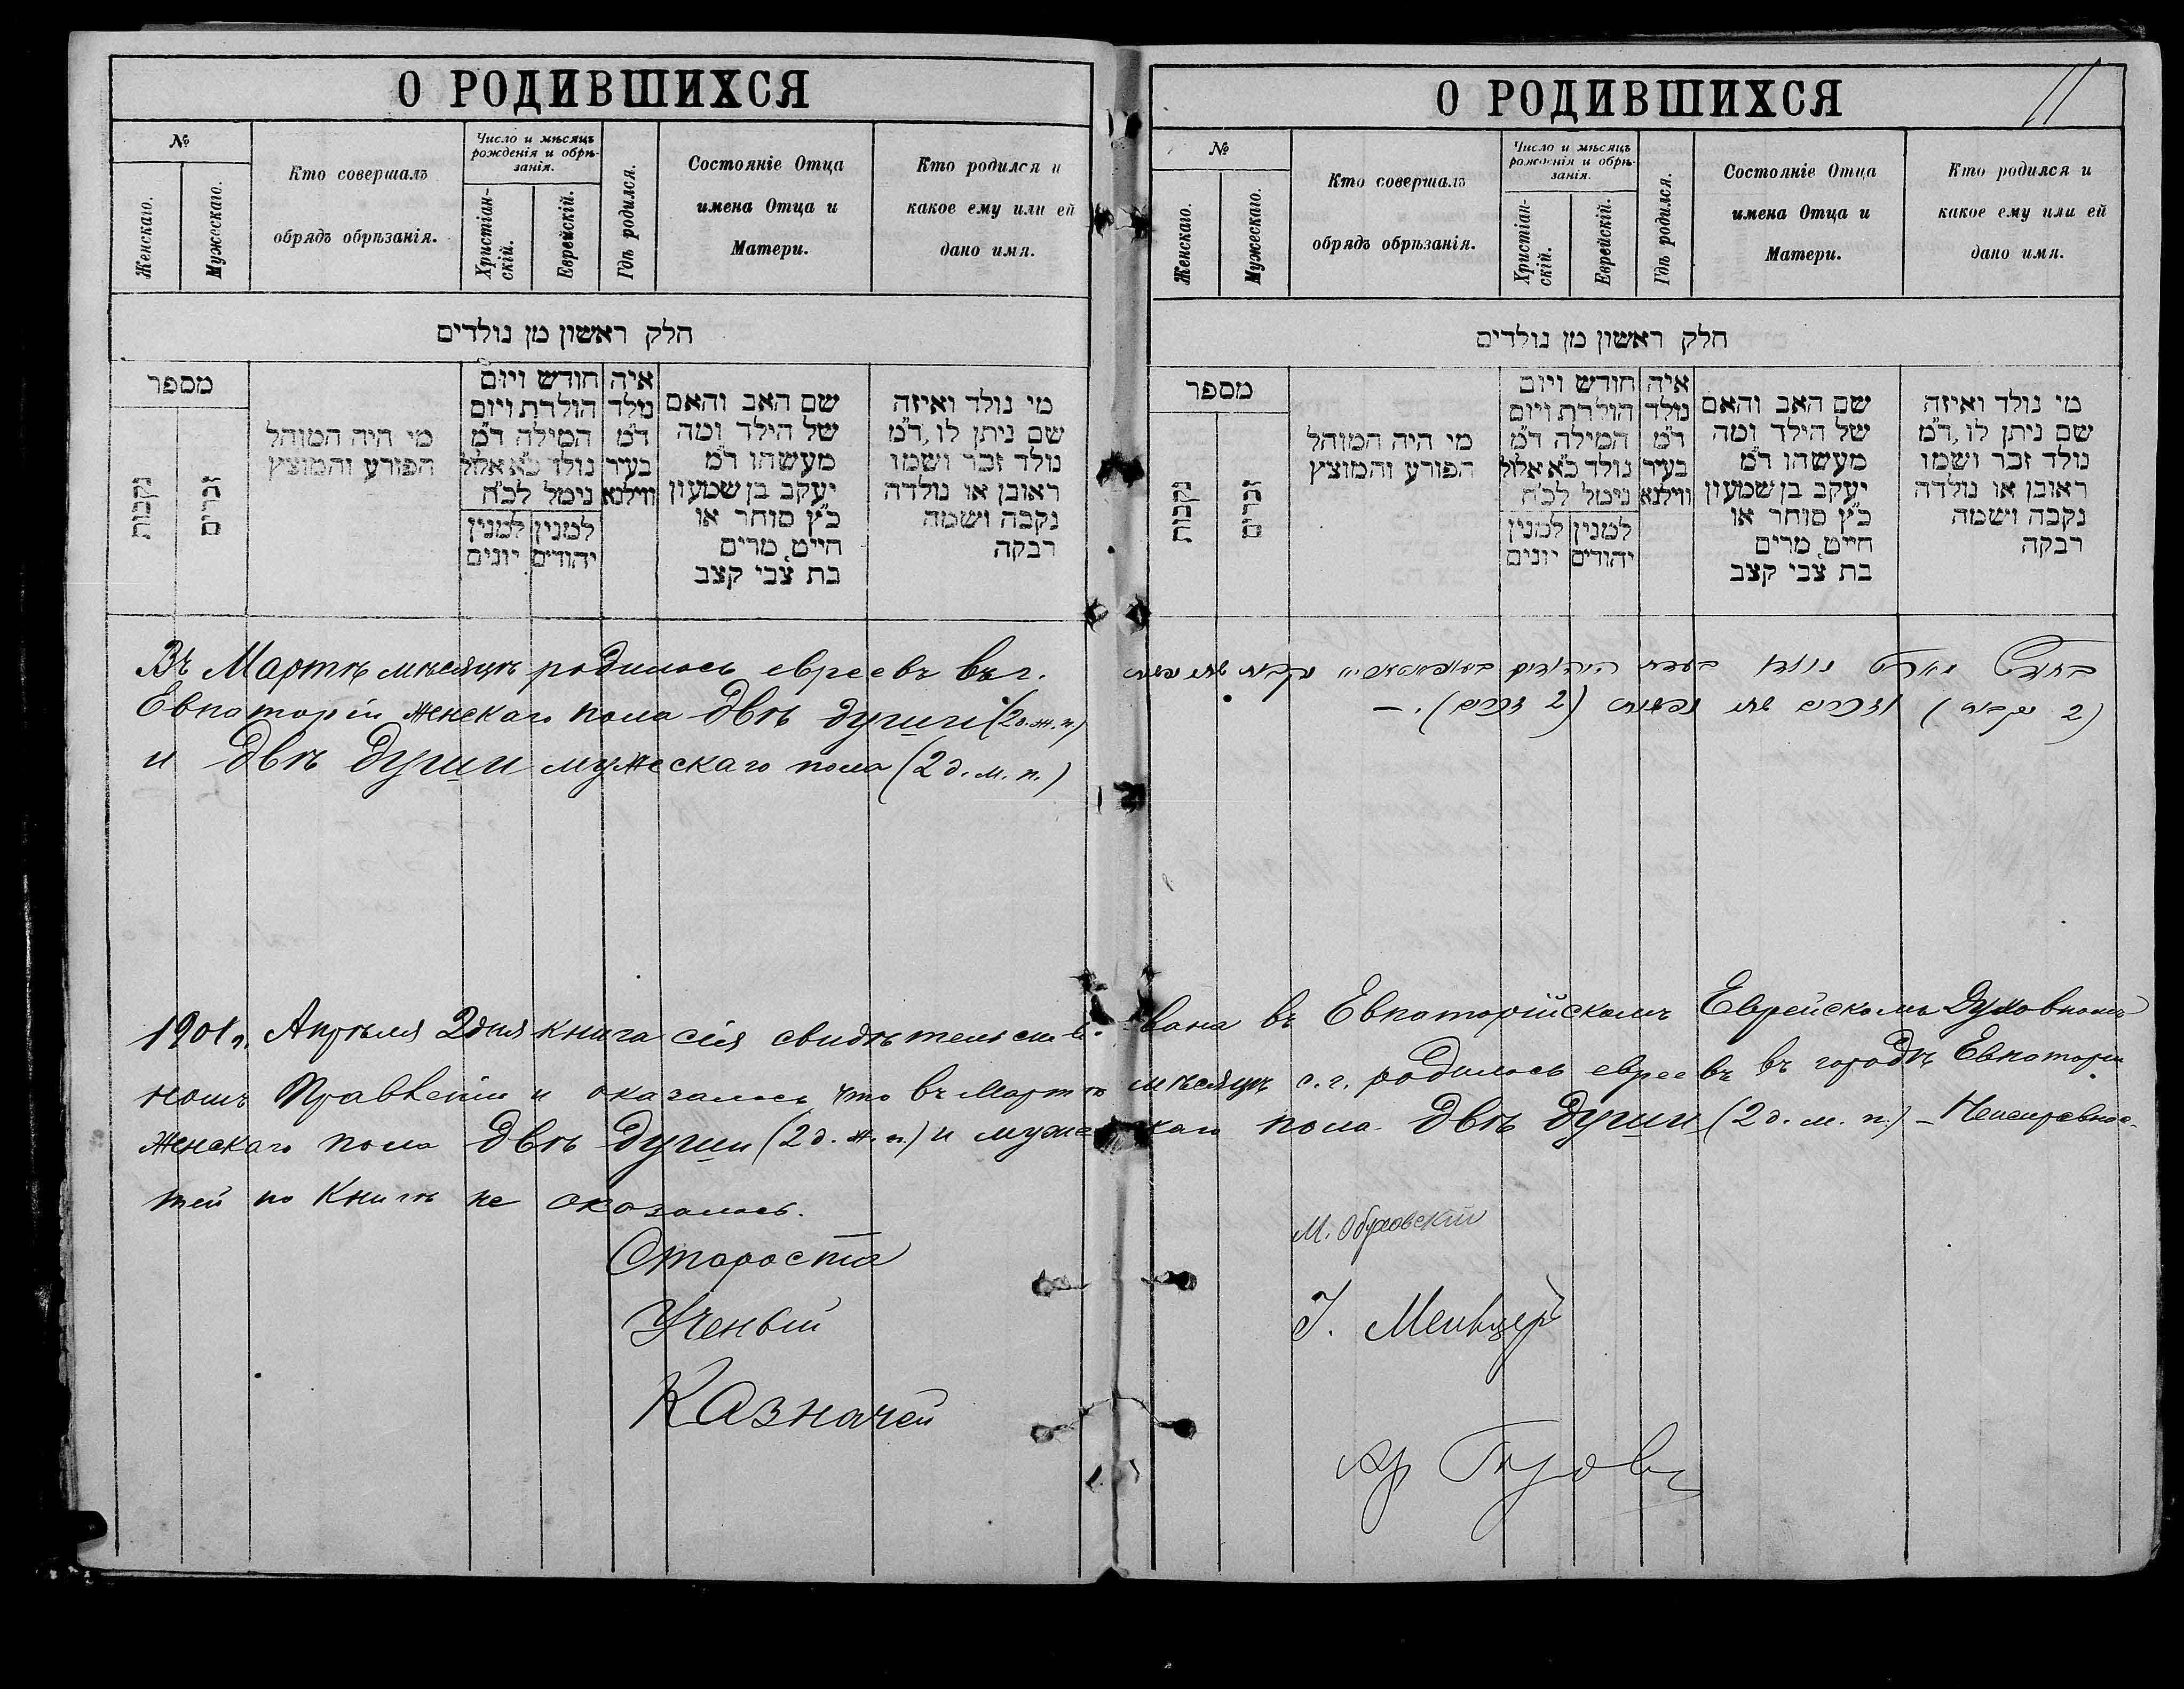 О РОДИВШИХСЯ
№
Женскаго.
Мужескаго.
Кто совершалъ
обрядъ обрѣзанія.
Число и мѣсяцъ
рожденія и обрѣ-
занія.
Христіан-
скій.
Еврейскій.
Гдѣ родился.
Состояніе Отца
имена Отца и
Матери.
Кто родился и
какое ему или ей
дано имя.
חלק ראשון מן נולדים
מספר
נקבות
זכרים
מי היה המוהל
הפורע והמוצץ
חודש ויום
הולדת ויום
המילה ד"מ
נולד כ"א אלול
נימל לכ"ח
למנין
יונים
למנין
יהודים
איה
נולד
ד"מ
בעיר
ווילנא
שם האב והאם
של הילד ומה
מעשהו ד"מ
יעקב בן שמעון
כ"ץ סוחר או
חייט, מרים
בת צבי קצב
מי נולד ואיזה
שם ניתן לו, ד"מ
נולד זכר ושמו
ראובן או נולדה
נקבה ושמה
רבקה
Въ Мартѣ мѣсяцѣ родилось евреевъ въ г.
Евпаторіи женскаго пола двѣ души (2 д. ж. п.)
и двѣ души мужескаго пола (2 д. м. п.)
О РОДИВШИХСЯ
11
№
Женскаго.
Мужескаго.
Кто совершалъ
обрядъ обрѣзанія.
Число и мѣсяцъ
рожденія и обрѣ-
занія.
Христіан-
скій.
Еврейскій.
Гдѣ родился.
Состояніе Отца
имена Отца и
Матери.
Кто родился и
какое ему или ей
дано имя.
חלק ראשון מן נולדים
מספר
נקבות
זכרים
מי היה המוהל
הפורע והמוצץ
חודש ויום
הולדת ויום
המילה ד"מ
נולד כ"א אלול
נימל לכ"ח
למנין
יונים
למנין
יהודים
איה
נולד
ד"מ
בעיר
ווילנא
שם האב והאם
של הילד ומה
מעשהו ד"מ
יעקב בן שמעון
כ"ץ סוחר או
חייט, מרים
בת צבי קצב
מי נולד ואיזה
שם ניתן לו, ד"מ
נולד זכר ושמו
ראובן או נולדה
נקבה ושמה
רבקה
(2 נקבות) וזכרים שתי נפשות (2 זכרים). —
1901 г. Апрѣля 2 дня книга сія свидѣтельство- вана въ Евпаторійскомъ Еврейскомъ Духовномъ
номъ Правленіи и оказалось что въ Мартѣ мѣсяцѣ с. г. родилось евреевъ въ городѣ Евпаторіи
женскаго пола двѣ души (2 д. ж. п.) и мужескаго пола двѣ души (2 д. м. п.) — Неисправнос-
тей по книгѣ не оказалось.
Староста М. Обуховскій
Ученый
Казначей